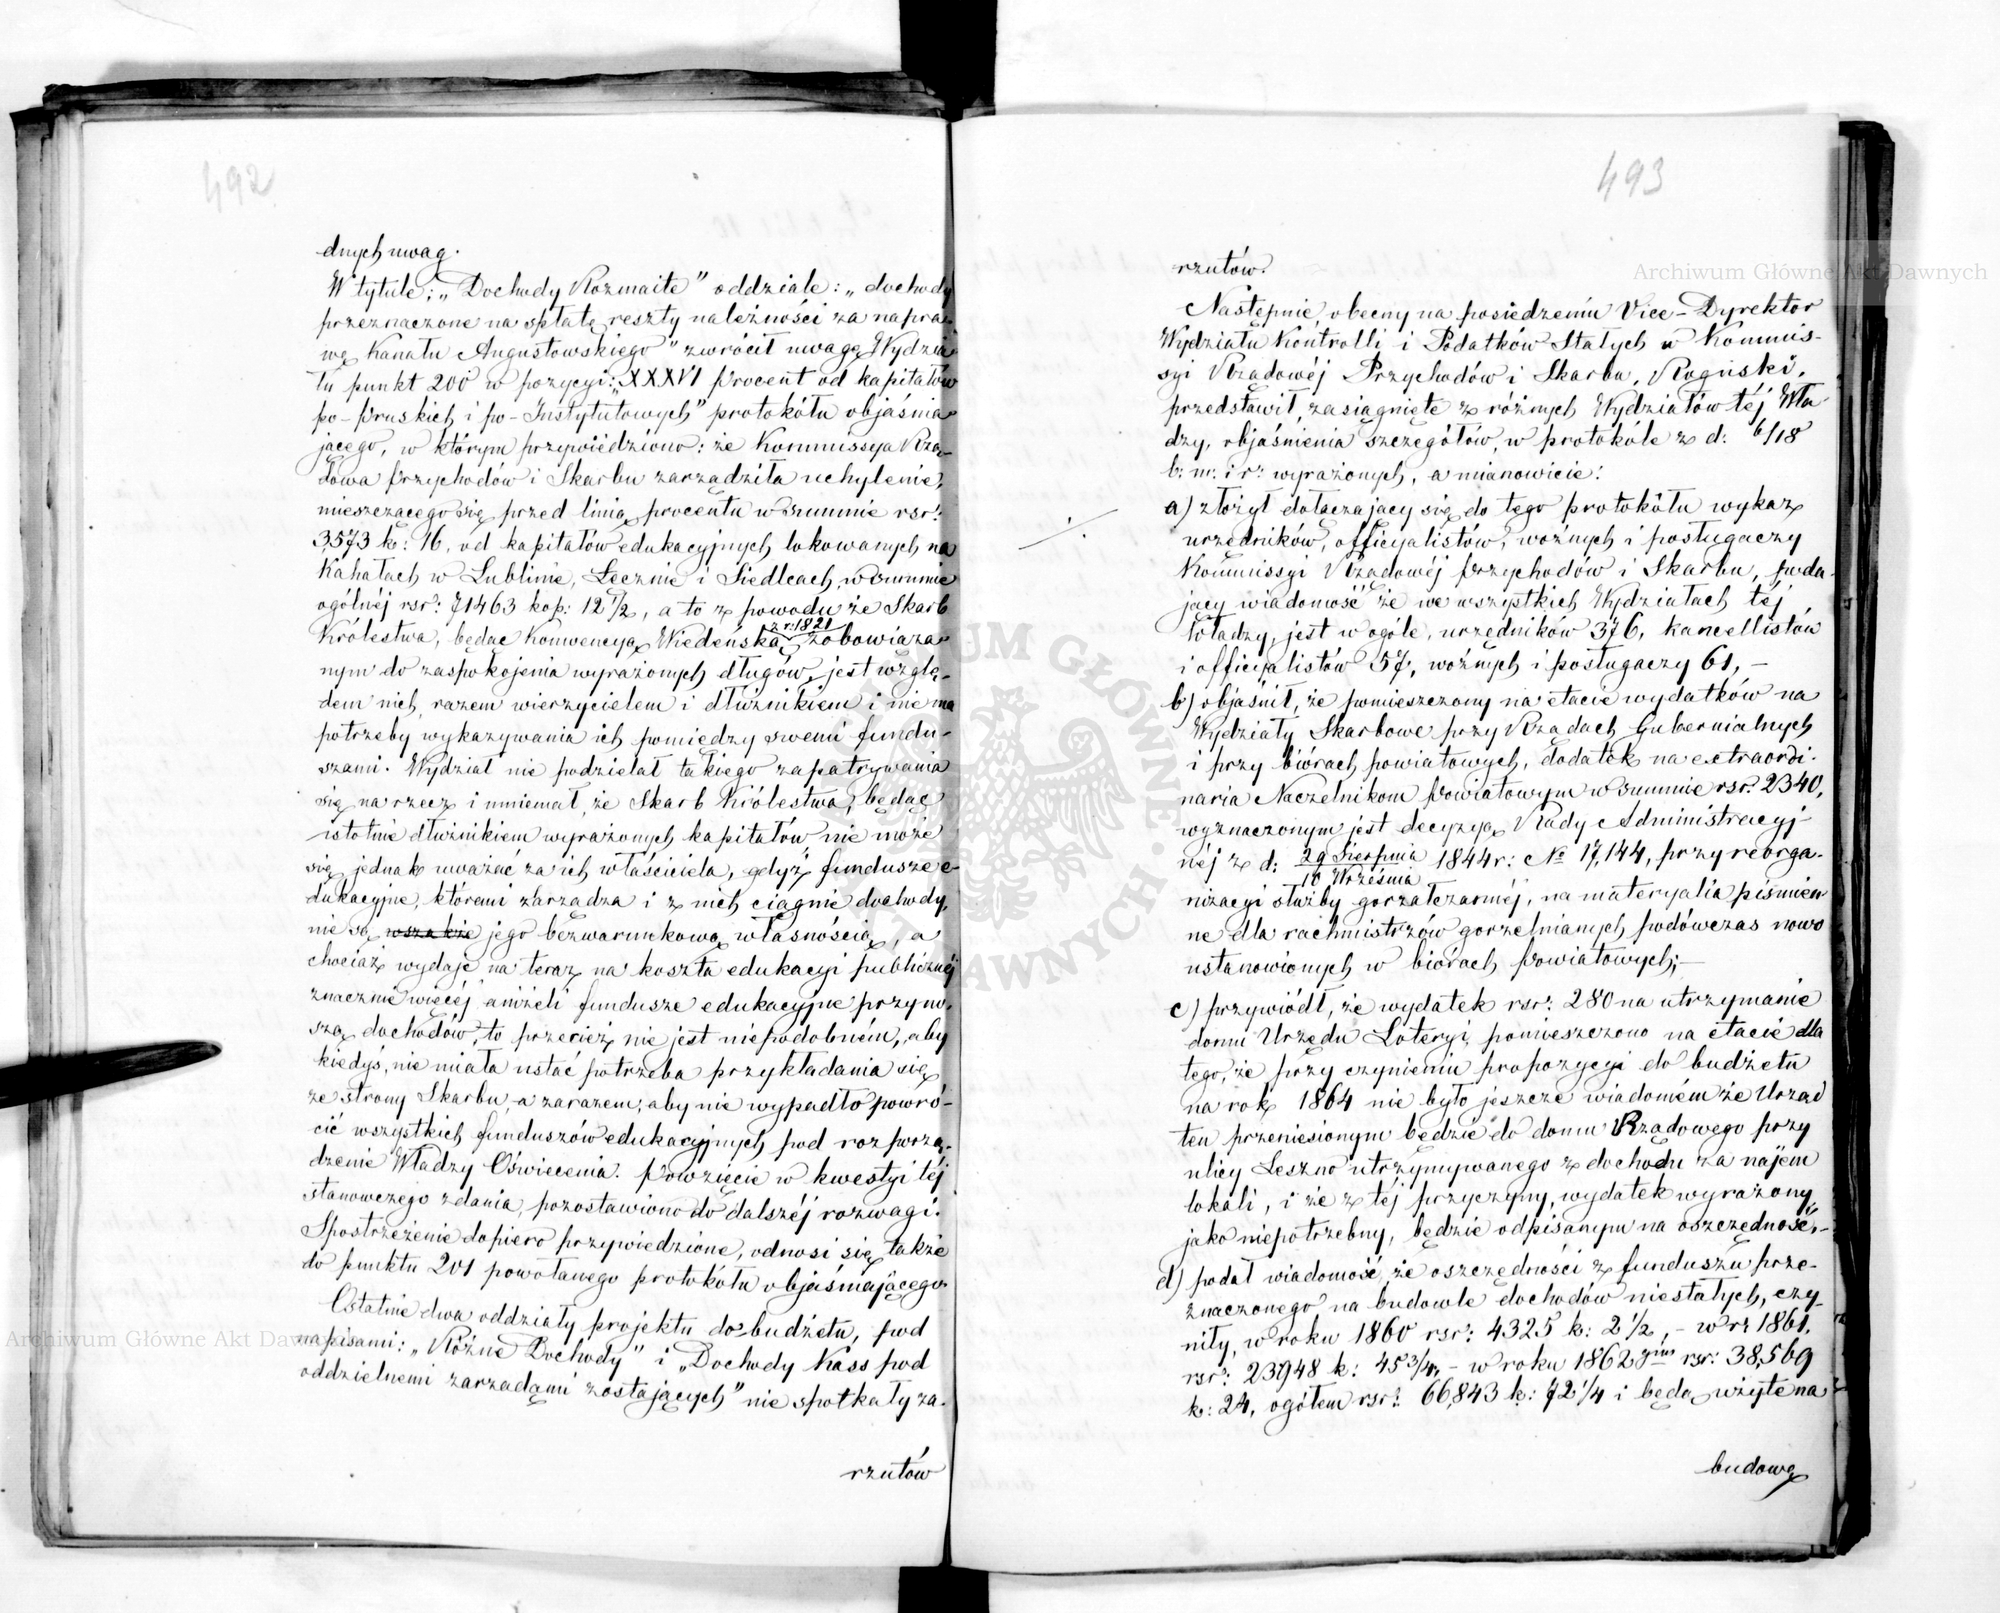 492
dnych uwag.
W tytule: „Dochody Rozmaite" oddziale: „dochody
przeznaczone na spłatę reszty należności za napra-
wę Kanału Augustowskiego" zwrócił uwagę Wydzia-
łu punkt 200 w pozycyi: „XXXVI Procent od kapitałów
po-Pruskich i po-Instytutowych" protokółu objaśnia-
jącego, w którym przywiedziono: że Kommissya Rzą-
dowa Przychodów i Skarbu zarządziła uchylenie,
mieszczącego się przed linią procentu w summie rsr:
3,573 k: 16, od kapitałów edukacyjnych lokowanych na
Kahałach w Lublinie, Łęcznie i Siedlcach, w summie
ogólnéj rsr: 71463 kop: 12 1/2, a to z powodu że Skarb
Królestwa, będąc Konwencyą Wiedeńską z r: 1821 zobowiąza-
nym do zaspokojenia wyrażonych długów, jest wzglę-
dem nich, razem wierzycielem i dłużnikiem i nie ma
potrzeby wykazywania ich pomiędzy swemi fundu-
szami. Wydział nie podzielał takiego zapatrywania
się na rzecz i mniemał, że Skarb Królestwa, będąc
istotnie dłużnikiem wyrażonych kapitałów, nie może
się jednak uważać za ich właściciela, gdyż fundusze e-
dukacyjne, któremi zarządza i z nich ciągnie dochody,
nie są wszakże jego bezwarunkową własnością, a
chociaż wydaje na teraz na koszta edukacyi publicznéj
znacznie więcéj, aniżeli fundusze edukacyjne przyno-
szą dochodów, to przecież nie jest niepodobném, aby
kiedyś, nie miała ustać potrzeba przykładania się
ze strony Skarbu, a zarazem, aby nie wypadło powró-
cić wszystkich funduszów edukacyjnych pod rozporzą-
dzenie Władzy Oświecenia. Powzięcie w kwestyi téj
stanowczego zdania, pozostawiono do dalszéj rozwagi.
Spostrzeżenie dopiero przywiedzione, odnosi się także
do punktu 201 powołanego protokółu objaśniającego.
Ostatnie dwa oddziały projektu do budżetu, pod
napisami: „Różne Dochody" i „Dochody Kass pod
oddzielnemi zarządami zostających" nie spotkały za-
rzutów
493
rzutów.
Następnie, obecny na posiedzeniu Vice-Dyrektor
Wydziału Kontrolli i Podatków Stałych w Kommis-
syi Rządowéj Przychodów i Skarbu, Roguski,
przedstawił, zasiągnięte z różnych Wydziałów téj Wła-
dzy, objaśnienia szczegółów, w protokóle z d: 6/18
b: m: i r: wyrażonych, a mianowicie:
a) złożył dołączający się do tego protokółu wykaz
urzędników, officyalistów, woźnych i posługaczy
Kommissyi Rządowéj Przychodów i Skarbu, poda-
jący wiadomość że we wszystkich Wydziałach téj
Władzy, jest w ogóle, urzędników 376, kancellistów
i officyalistów 57, woźnych i posługaczy 61,—
b) objaśnił, że pomieszczony na etacie wydatków na
Wydziały Skarbowe przy Rządach Gubernialnych
i przy biórach powiatowych, dodatek na extraordi-
naria Naczelnikom Powiatowym w summie rsr: 2340,
wyznaczonym jest decyzyą Rady Administracyj-
néj z d: 29 Sierpnia/10 Września 1844 r: № 17,144, przy reorga-
nizacyi służby gorzałczannéj, na materyalia piśmien-
ne dla rachmistrzów gorzelnianych podówczas nowo
ustanowionych w biórach Powiatowych;—
c) przywiódł, że wydatek rsr: 280 na utrzymanie
domu Urzędu Loteryi, pomieszczono na etacie dla
tego, że przy czynieniu propozycyi do budżetu
na rok 1864 nie było jeszcze wiadomém że Urząd
ten przeniesionym będzie do domu Rządowego przy
ulicy Leszno utrzymywanego z dochodu za najem
lokali, i że z téj przyczyny, wydatek wyrażony
jako niepotrzebny, będzie odpisanym na oszczędność,—
d) podał wiadomość, że oszczędności z funduszu prze-
znaczonego na budowle dochodów niestałych, czy-
niły, w roku 1860 rsr: 4325 k: 2 1/2,— w r: 1861,
rsr: 23948 k: 45 3/4,— w roku 1862 rsr: 38,569
k: 24, ogółem rsr: 66,843 k: 72 1/4 i będą użyte na
budowę
Archiwum Główne Akt Dawnych
Archiwum Główne Akt Dawnych